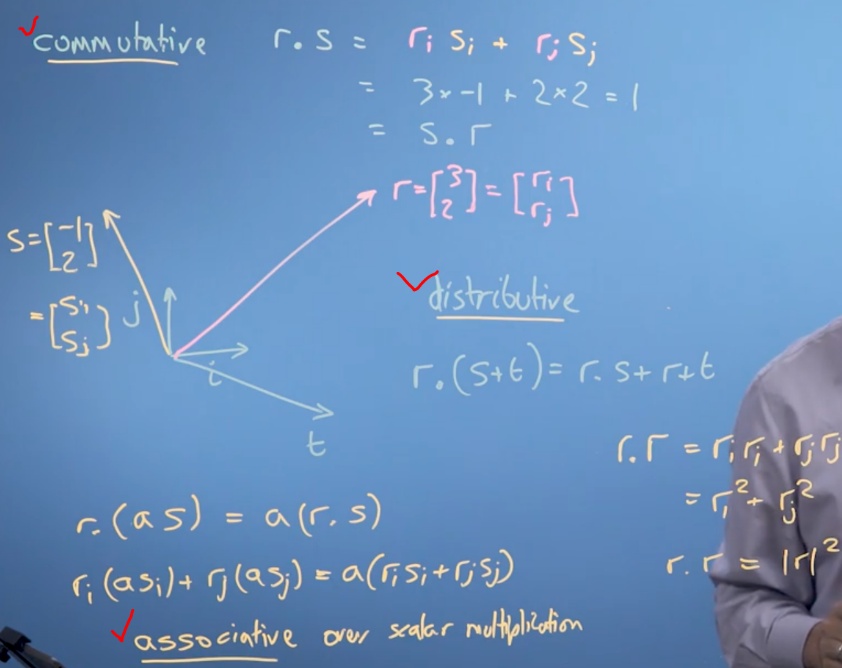 commutative r.s = rᵢ sᵢ + rⱼ sⱼ
= 3×-1 + 2×2 = 1
= s.r
r = [3 2] = [rᵢ rⱼ]
s = [-1 2]
= [sᵢ sⱼ]
j
i
t
distributive
r.(s+t) = r.s + r+t
r.r = rᵢrᵢ + rⱼrⱼ
= rᵢ² + rⱼ²
r.r = |r|²
r.(as) = a(r.s)
rᵢ(asᵢ) + rⱼ(asⱼ) = a(rᵢsᵢ + rⱼsⱼ)
associative over scalar multiplication